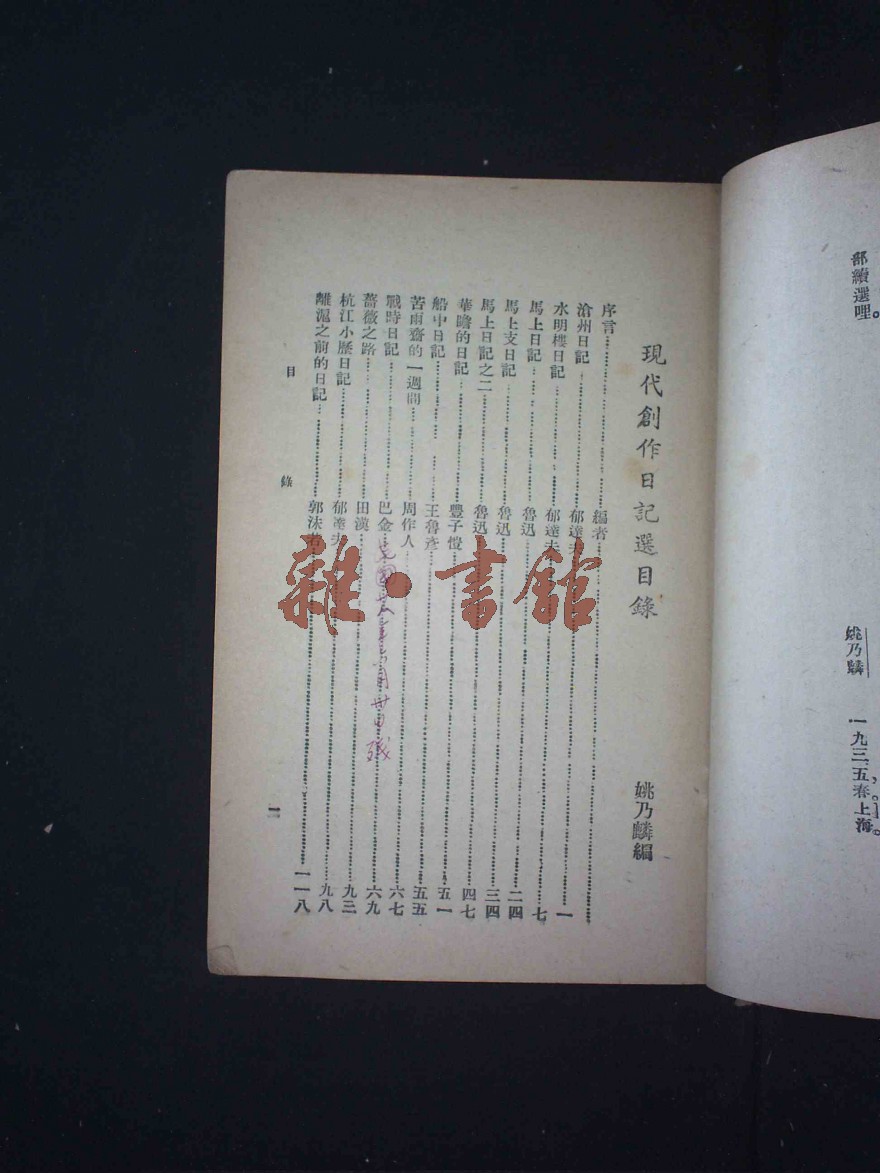 部續選哩。
姚乃麟 一九三五春,上海。
現代創作日記選目錄 姚乃麟編
序言……編者……
滄州日記……郁達夫……一
水明樓日記……郁達夫……七
馬上日記……魯迅……二四
馬上支日記……魯迅……三四
馬上日記之二……魯迅……四七
華瞻的日記……豐子愷……五一
船中日記……王魯彥……五五
苦雨齋的一週間……周作人……六七
戰時日記……巴金……六九
薔薇之路……田漢……九三
杭江小歷日記……郁達夫……九八
離滬之前的日記……郭沫若……一一八
目錄
雜·書館